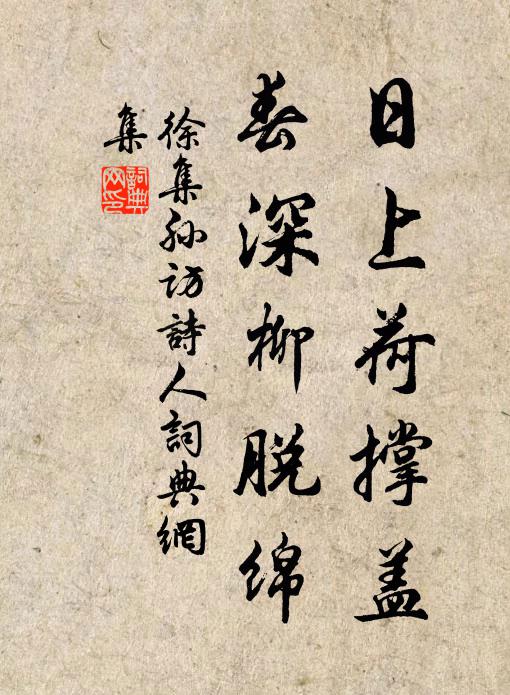 日上荷撑盖
春深柳脱绵
徐集孙访詩人詞典網
集
詞典
网印